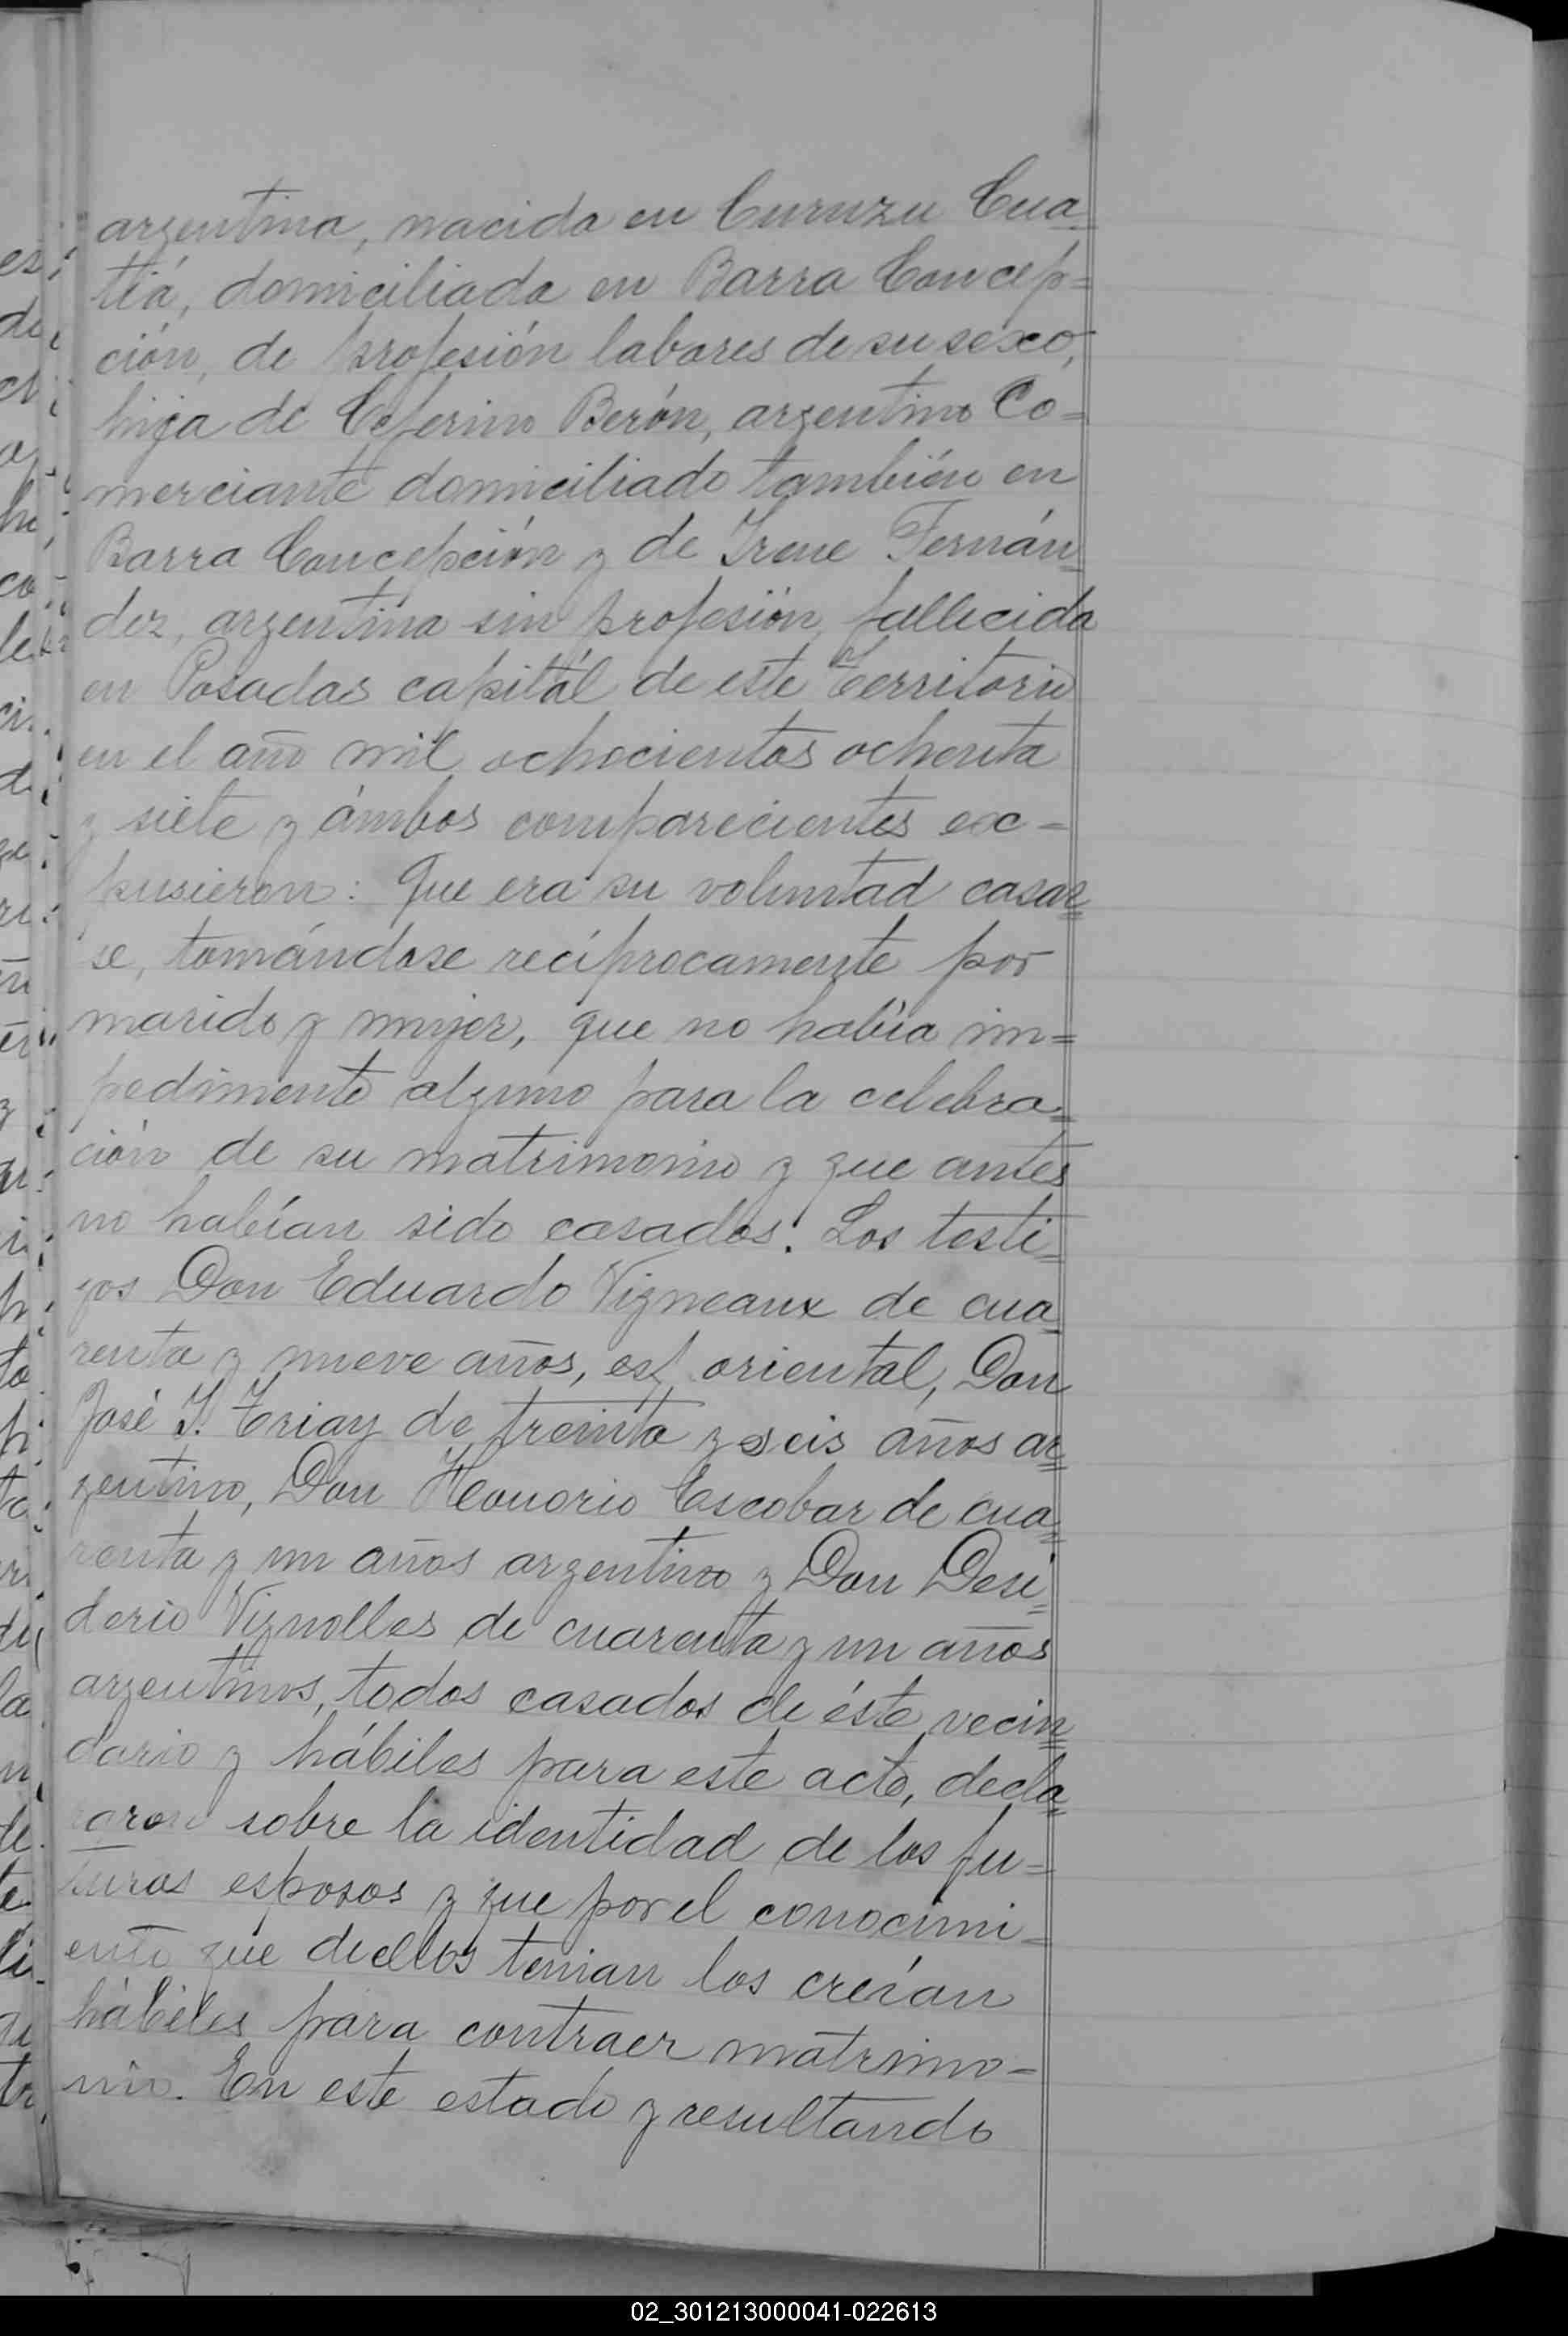 argentina, nacida en Curuzu Cua-
tiá, domiciliada en Barra Concep=
ción, de profesión labores de su sexo,
hija de Ceferino Berón, argentino Co=
merciante domiciliado también en
Barra Concepción y de Irene Fernán=
dez, argentina sin profesión, fallecida
en Posadas capitál de este Territorio
en el año mil ochocientos ochenta
y siete y ámbos comparecientes ex=
pusieron: Que era su voluntad casar=
se, tomándose recíprocamente por
marido y mujer, que no habia im=
pedimento alguno para la celebra=
ción de su matrimonio y que antes
no habían sido casados. Los testi=
gos Don Eduardo Vigneaux de cua=
renta y nueve años, oriental, Don
José I. Triay de treinta y seis años ar=
gentino, Don Honorio Escobar de cua=
renta y un años argentino y Don Desi=
derio Vignolles de cuarenta y un años
argentinos, todos casados de éste vecin=
dario y hábiles para este acto, decla=
raron sobre la identidad de los fu=
turos esposos y que por el conocimi=
ento que de ellos tenian los creían
hábiles para contraer matrimo=
nio. En este estado y resultando
02_301213000041-022613